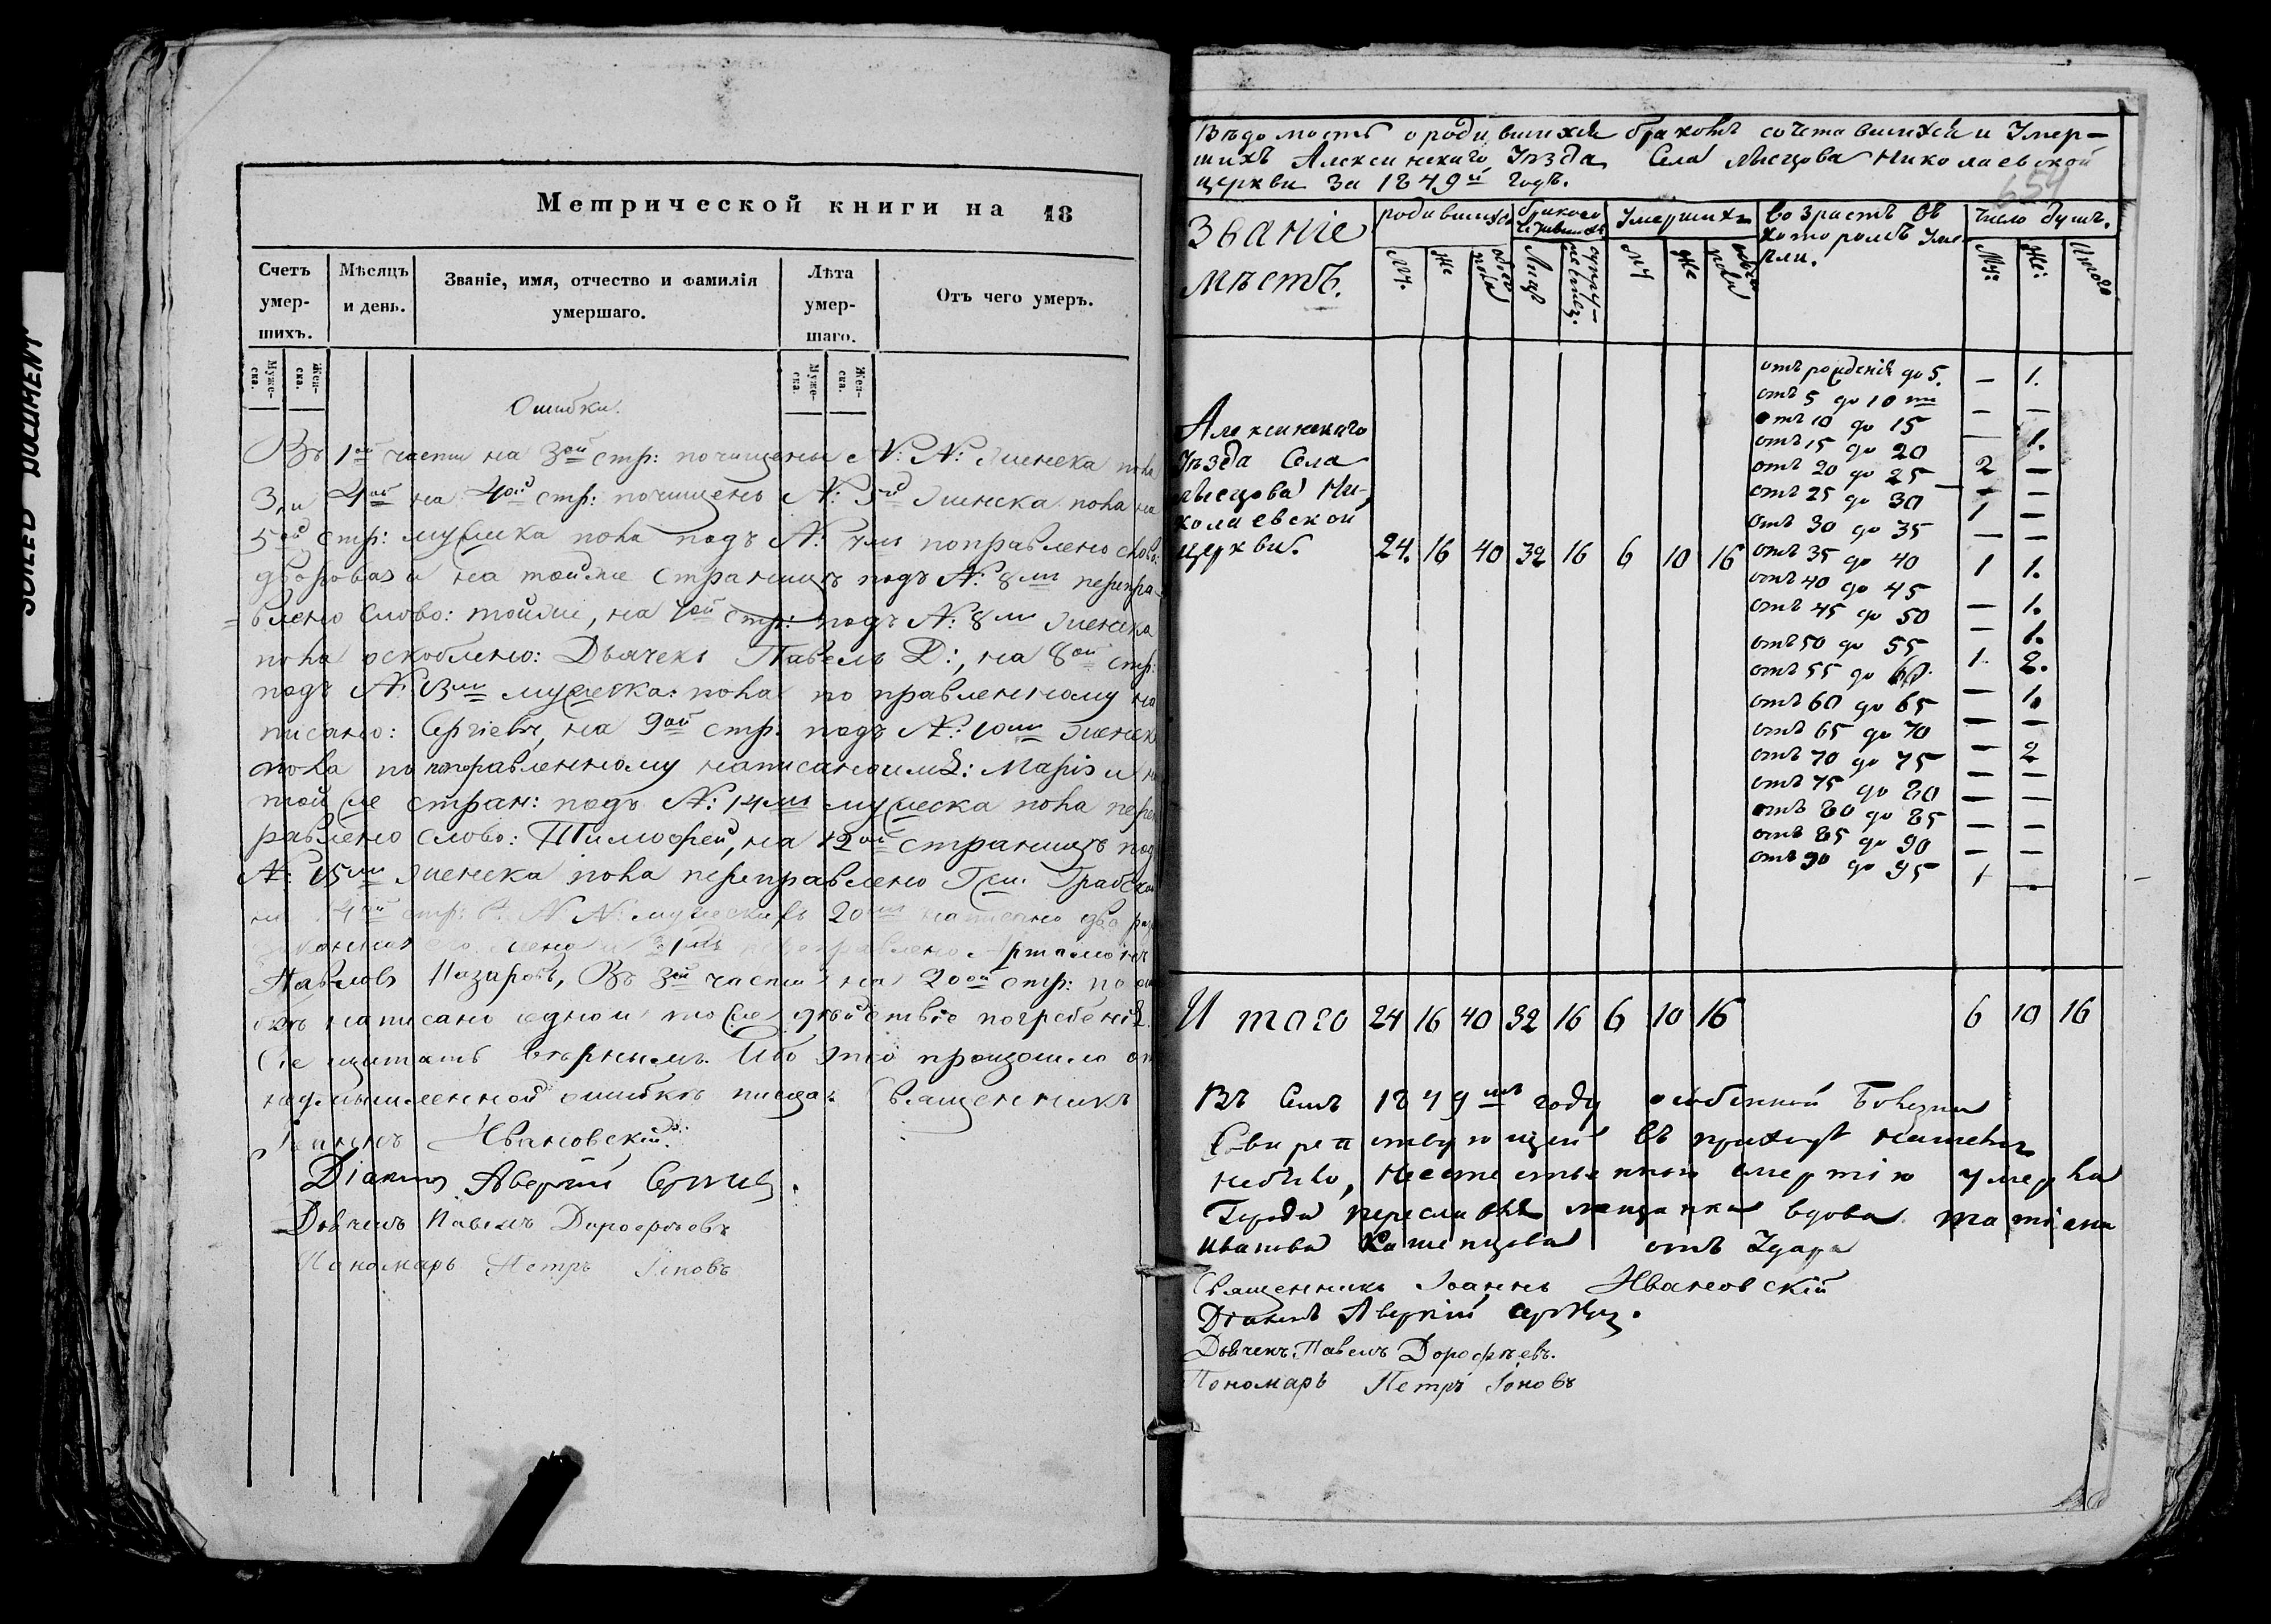 SOILED DOCUMENT
Метрической книги на 18
Счетъ умер-шихъ.
Мѣсяцъ и день.
Званіе, имя, отчество и фамилія умершаго.
Лѣта умер-шаго.
Отъ чего умеръ.
Муже-ска.
Жен-ска.
Муже-ска.
Жен-ска.
Ошибки.
Въ 1ой части на 3ой стр: почищены N: N: женска пола
3, и 4ой на 4ой стр: почищено N: 5й женска пола на
5ой стр: мужска пола подъ N: 7мъ поправлено слово:
дворовая и на тойже страницѣ подъ N: 8мъ перепра-
влено слово: тойже, на 7ой стр: подъ N: 8мъ женска
пола оскоблено: Дьячекъ Павелъ Д:, на 8ой стр:
подъ N: 13мъ мужеска: пола по правленному на
писано: Сергіевъ, на 9ой стр: подъ N: 10мъ женск
пола по поправленному написано имя: Марія и н
той же стран: подъ N: 14мъ мужеска пола пере
равлено слово: Тимофей, на 12ой страницѣ под
N: 15мъ женска пола переправлено Ген. Грабском
стр: N N: мужеска 20мъ написано два раз
31мъ переправлено Артамонъ
Павловъ Назаровъ, Въ 3й части на 20ой стр: по
написано одно и тоже дѣйствіе погребенія.
Сіе щитать вѣрнымъ. Ибо это произошло от
неумышленной ошибкѣ писца. Священникъ
Іоаннъ Ивановскій.
Діаконъ Аверкій Сергіевъ.
Дьячекъ Павелъ Дорофѣевъ
Пономарь Петръ Іоновъ
Вѣдомость о родившихся бракомъ сочетавшихся и Умер-
шихъ Алексинскаго Уѣзда Села Мысцова Николаевской
церкви за 1849й годъ.
654
Званіе мѣстъ.
родившихся
Умершихъ
возрастъ въ которомъ Уме рли.
Число душъ.
Му.
Же
обоего пола
Лицъ
Му
Же
обоего пола
Му:
Же:
Итого
Алексинскаго
Уѣзда Села
Мысцова Ни-
колаевской
церкви. 24. 16 40 32 16 6 10 16
отъ рожденія до 5. — 1.
отъ 5 до 10 ти — —
отъ 10 до 15 — 1.
отъ 15 до 20 2 —
отъ 20 до 25 — —
отъ 25 до 30 1 —
отъ 30 до 35 — —
отъ 35 до 40 1 1.
отъ 40 до 45 — 1.
отъ 45 до 50 — 1.
отъ 50 до 55 1. 2.
отъ 55 до 60. — 1.
отъ 60 до 65 — —
отъ 65 до 70 — 2
отъ 70 до 75 — —
отъ 75 до 80 — —
отъ 80 до 85 — —
отъ 85 до 90 — —
отъ 90 до 95 1 —
Итого 24 16 40 32 16 6 10 16 6 10 16
Въ Семъ 1849мъ году особенной Болезни
Свирепствующей въ приходѣ нашемъ
небыло, неестественною смертію умерла
Города Переславля мещанка вдова Татіана
Иванова отъ Удара
Священникъ Іоаннъ Ивановскій
Діаконъ Аверкій Сергіевъ.
Дьячекъ Павелъ Дорофѣевъ.
Пономарь Петръ Іоновъ